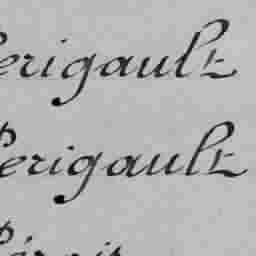 Perigault
Perigault